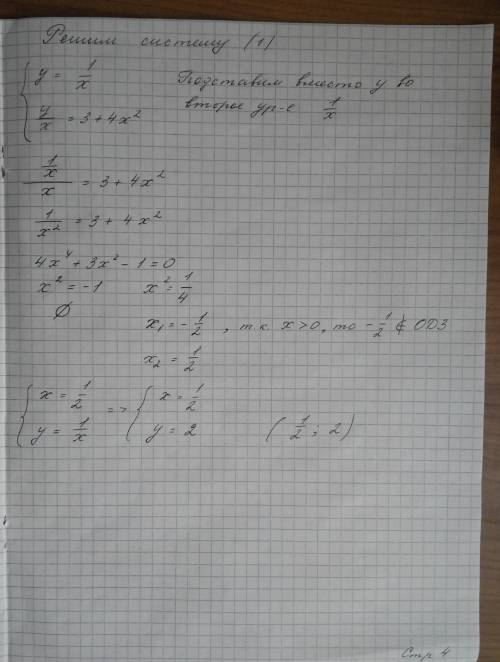 Решим систему (1)
{ y = 1/x
y/x = 3 + 4x²
Подставим вместо y во
второе ур-е 1/x
(1/x)/x = 3 + 4x²
1/x² = 3 + 4x²
4x⁴ + 3x² - 1 = 0
x² = -1 x² = 1/4
∅
x₁ = -1/2 , т.к. x > 0, то -1/2 ∉ ОДЗ
x₂ = 1/2
{ x = 1/2 => { x = 1/2
y = 1/x y = 2 (1/2 ; 2)
Стр 4